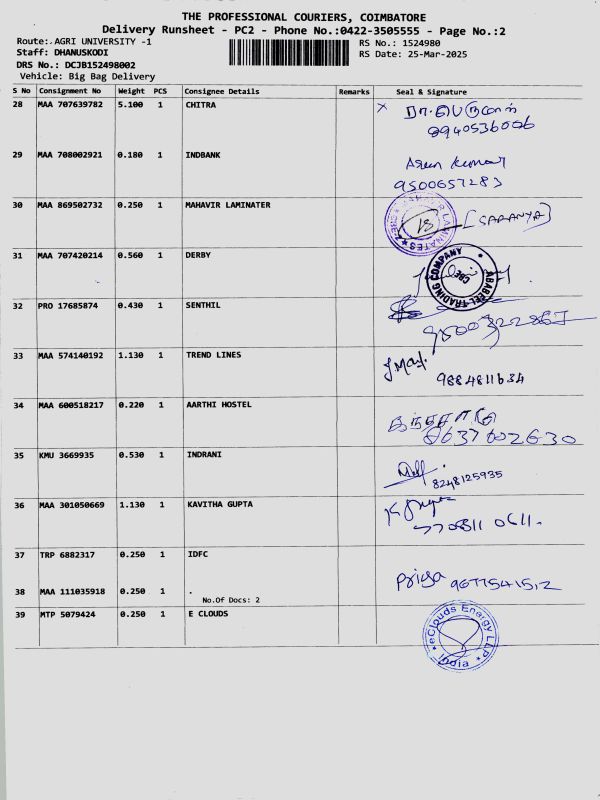 THE PROFESSIONAL COURIERS, COIMBATORE
Delivery Runsheet - PC2 - Phone No.:0422-3505555 - Page No.:2
Route:.AGRI UNIVERSITY -1
RS No.: 1524980
Staff: DHANUSKODI
RS Date: 25-Mar-2025
DRS No.: DCJB152498002
Vehicle: Big Bag Delivery
S No Consignment No Weight PCS Consignee Details Remarks Seal & Signature
28 MAA 707639782 5.100 1 CHITRA
8940536006
29 MAA 708002921 0.180 1 INDBANK Arun Kumar
9500657283
30 MAA 869502732 0.250 1 MAHAVIR LAMINATER [SARANYA]
31 MAA 707420214 0.560 1 DERBY ABABEEL TRADING COMPANY CBE
32 PRO 17685874 0.430 1 SENTHIL
33 MAA 574140192 1.130 1 TREND LINES
9884811634
34 MAA 600518217 0.220 1 AARTHI HOSTEL
8637602630
35 KMU 3669935 0.530 1 INDRANI
8248125935
36 MAA 301050669 1.130 1 KAVITHA GUPTA K Gupta
37 TRP 6882317 0.250 1 IDFC
Priya 9677541512
38 MAA 111035918 0.250 1 .
No.Of Docs: 2
39 MTP 5079424 0.250 1 E CLOUDS eClouds Energy LLP India